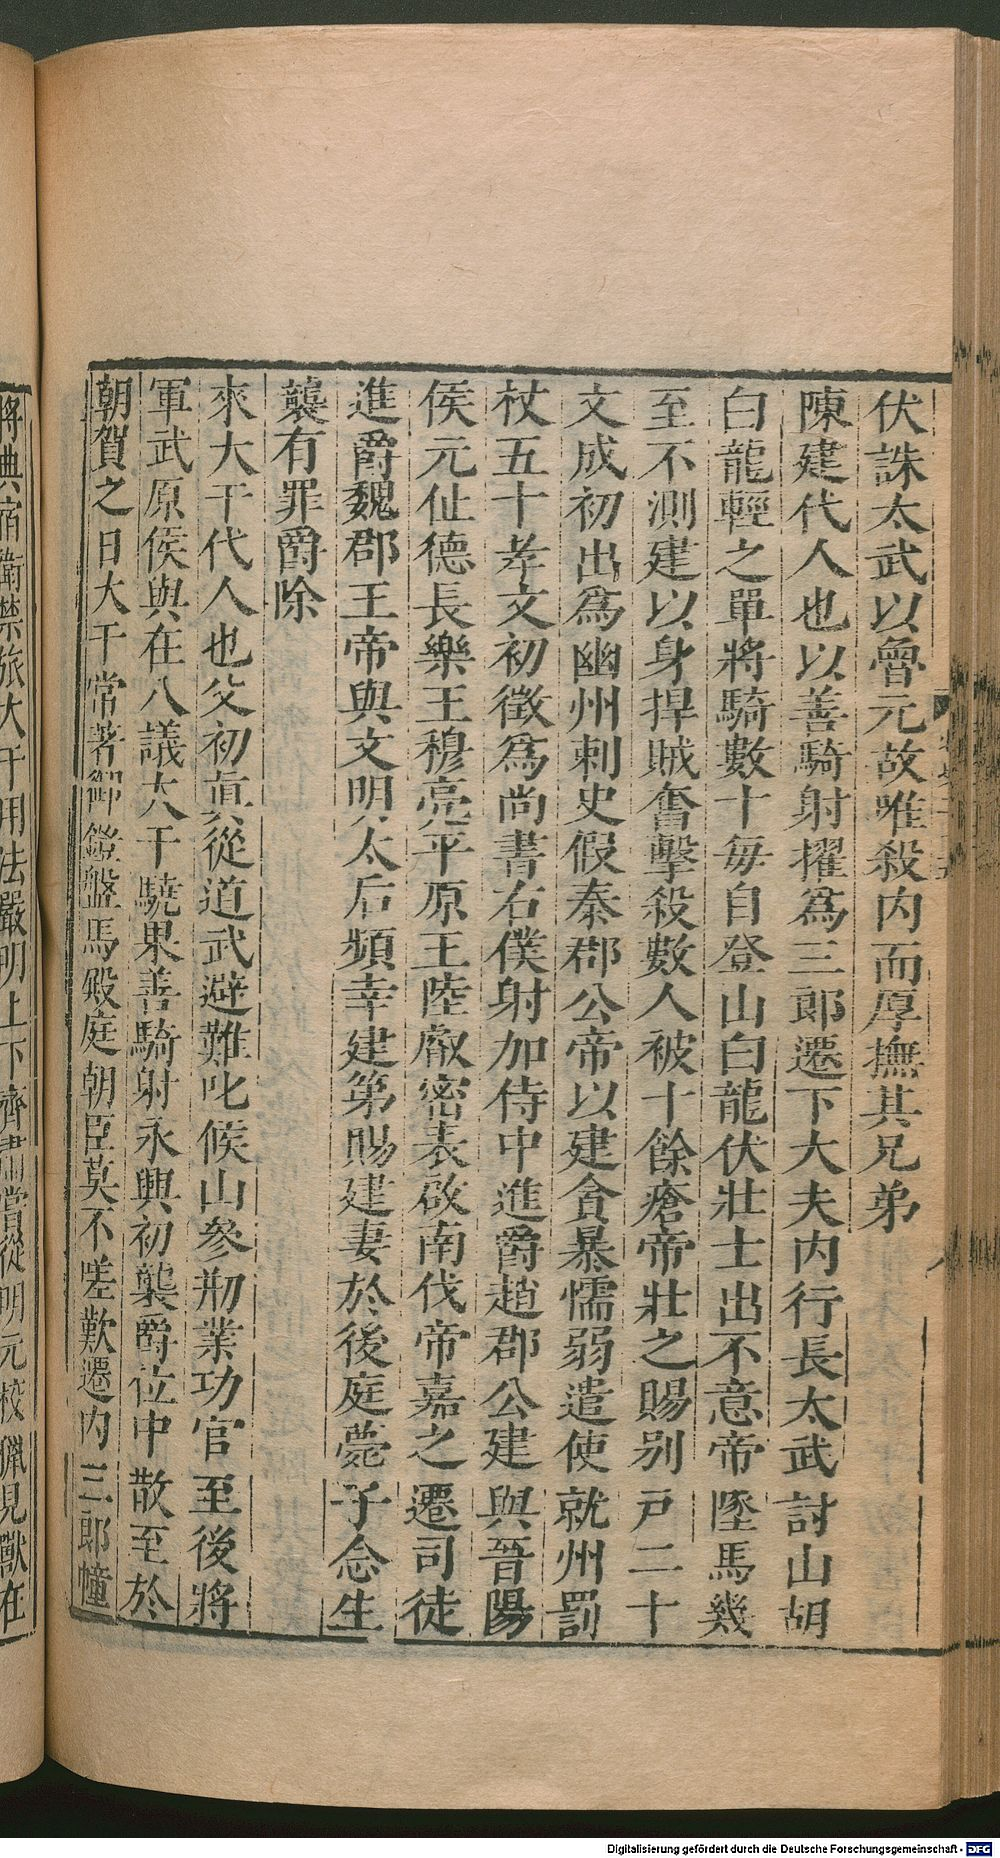 伏誅太武以魯元故唯殺内而厚撫其兄弟
陳建代人也以善騎射擢爲三郎遷下大夫内行長太武討山胡
白龍輕之單將騎數十毎自登山白龍伏壯士出不意帝墜馬幾
至不測建以身捍賊奮擊殺數人被十餘瘡帝壯之賜别戸二十
文成初出爲幽州刺史假秦郡公帝以建貪暴懦弱遣使就州罰
杖五十孝文初徵爲尚書右僕射加侍中進爵趙郡公建與晉陽
侯元仙德長樂王穆亮平原王陸叡密表啟南伐帝嘉之遷司徒
進爵魏郡王帝與文明太后頻幸建第賜建妻於後庭薨子念生
襲有罪爵除
來大干代人也父初眞從道武避難叱候山參剏業功官至後將
軍武原侯與在八議大干驍果善騎射永興初襲爵位中散至於
朝賀之日大干常著御鎧盤馬殿庭朝臣莫不嗟歎遷内三郎幢
將典宿衛禁旅大干用法嚴明上下齊肅嘗從明元校獵見獸在
Digitalisierung gefördert durch die Deutsche Forschungsgemeinschaft - DFG